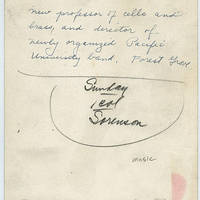 new professor of cello and
brass, and director of
newly organized Pacific
University band. Forest Grove
Sunday
1 col
Sorenson
MUSIC